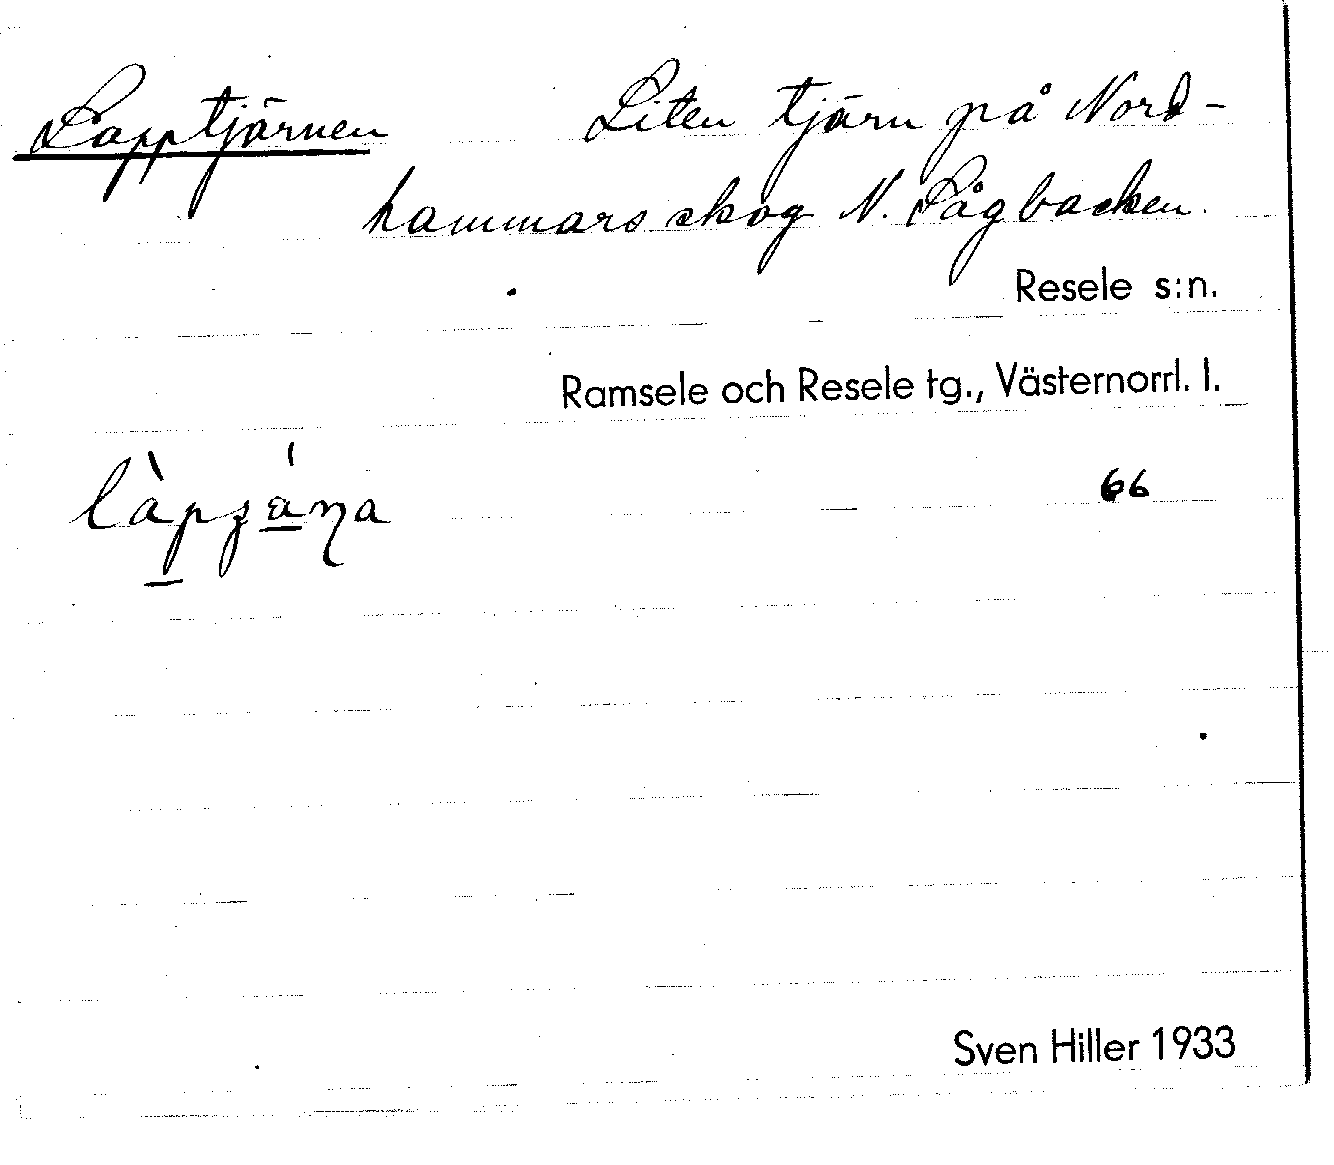 Lapptjärnen Liten tjärn på Nord-
hammars skog N. Sågbacken.
Resele s:n.
Ramsele och Resele tg., Västernorrl. l.
66
Sven Hiller 1933